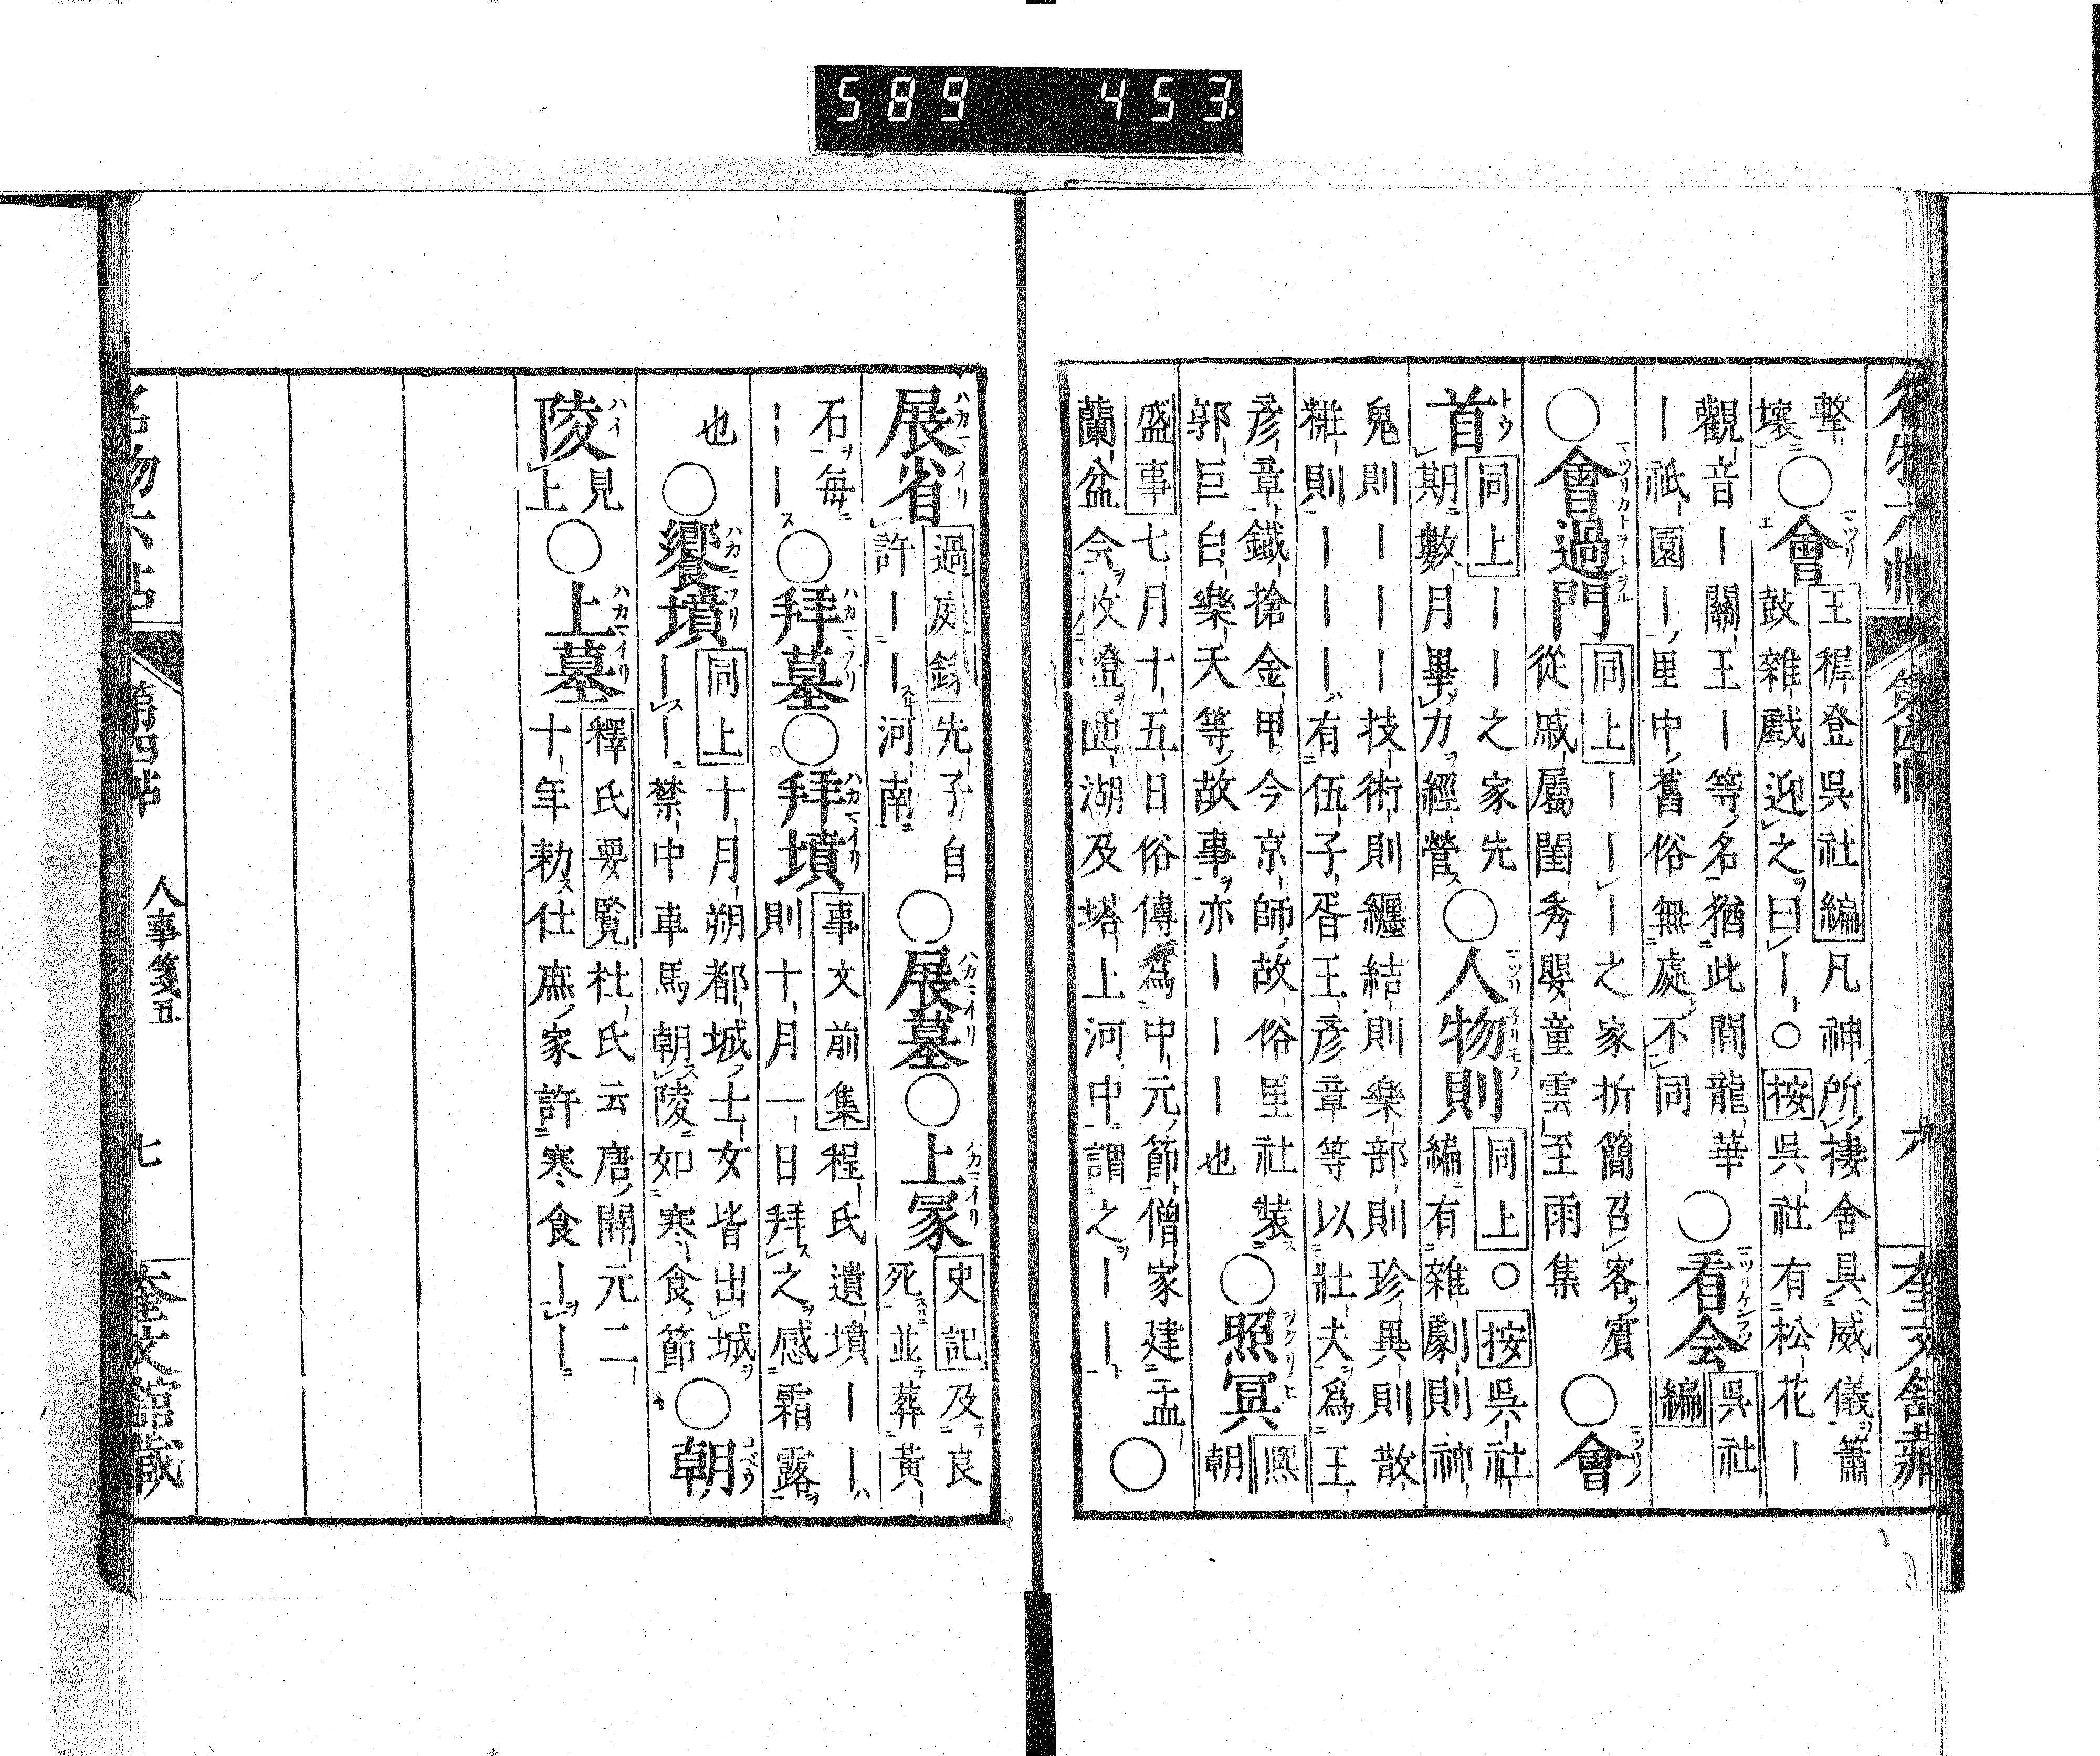 589 453
名物六帖 第四帖 六 奎文舘藏
擊
壞
○會
王穉登吳社編凡神所棲舍具威儀簫
鼓雜戲迎之曰｜○按吳社有松花｜
觀音｜關王｜等名猶此間龍華
｜祇園｜里中舊俗無處不同
○看会
吳社
編
○會過門
同上｜｜｜之家折簡召客賓
從戚屬閨秀嬰童雲至雨集
○會
首
同上｜｜之家先
期數月畢力經營
○人物則
同上○按吳社
編有雜劇則神
鬼則｜｜｜｜技術則纏結則樂部則珍異則散
粧則｜｜｜｜有伍子胥王彥章等以壯夫爲王
彥章鐵搶金甲今京師故俗里社裝
郭巨白樂天等故事亦｜｜｜也
○照冥
熈
朝
盛事七月十五日俗傳爲中元節僧家建盂
蘭盆会放燈西湖及塔上河中謂之｜｜
○
展省
過庭錄先子自
許｜｜河南
○展墓○上冢
史記及良
死並葬黃
石每
｜｜
○拜墓○拜墳
事文前集程氏遺墳｜｜
則十月一日拜之感霜露
也
○饗墳
同上十月朔都城士女皆出城
｜｜禁中車馬朝陵如寒食節
○朝
陵
見
上
○上墓
釋氏要覧杜氏云唐開元二
十年勅仕庶家許寒食｜｜
名物六帖 第四帖 人事箋五 七 奎文舘藏